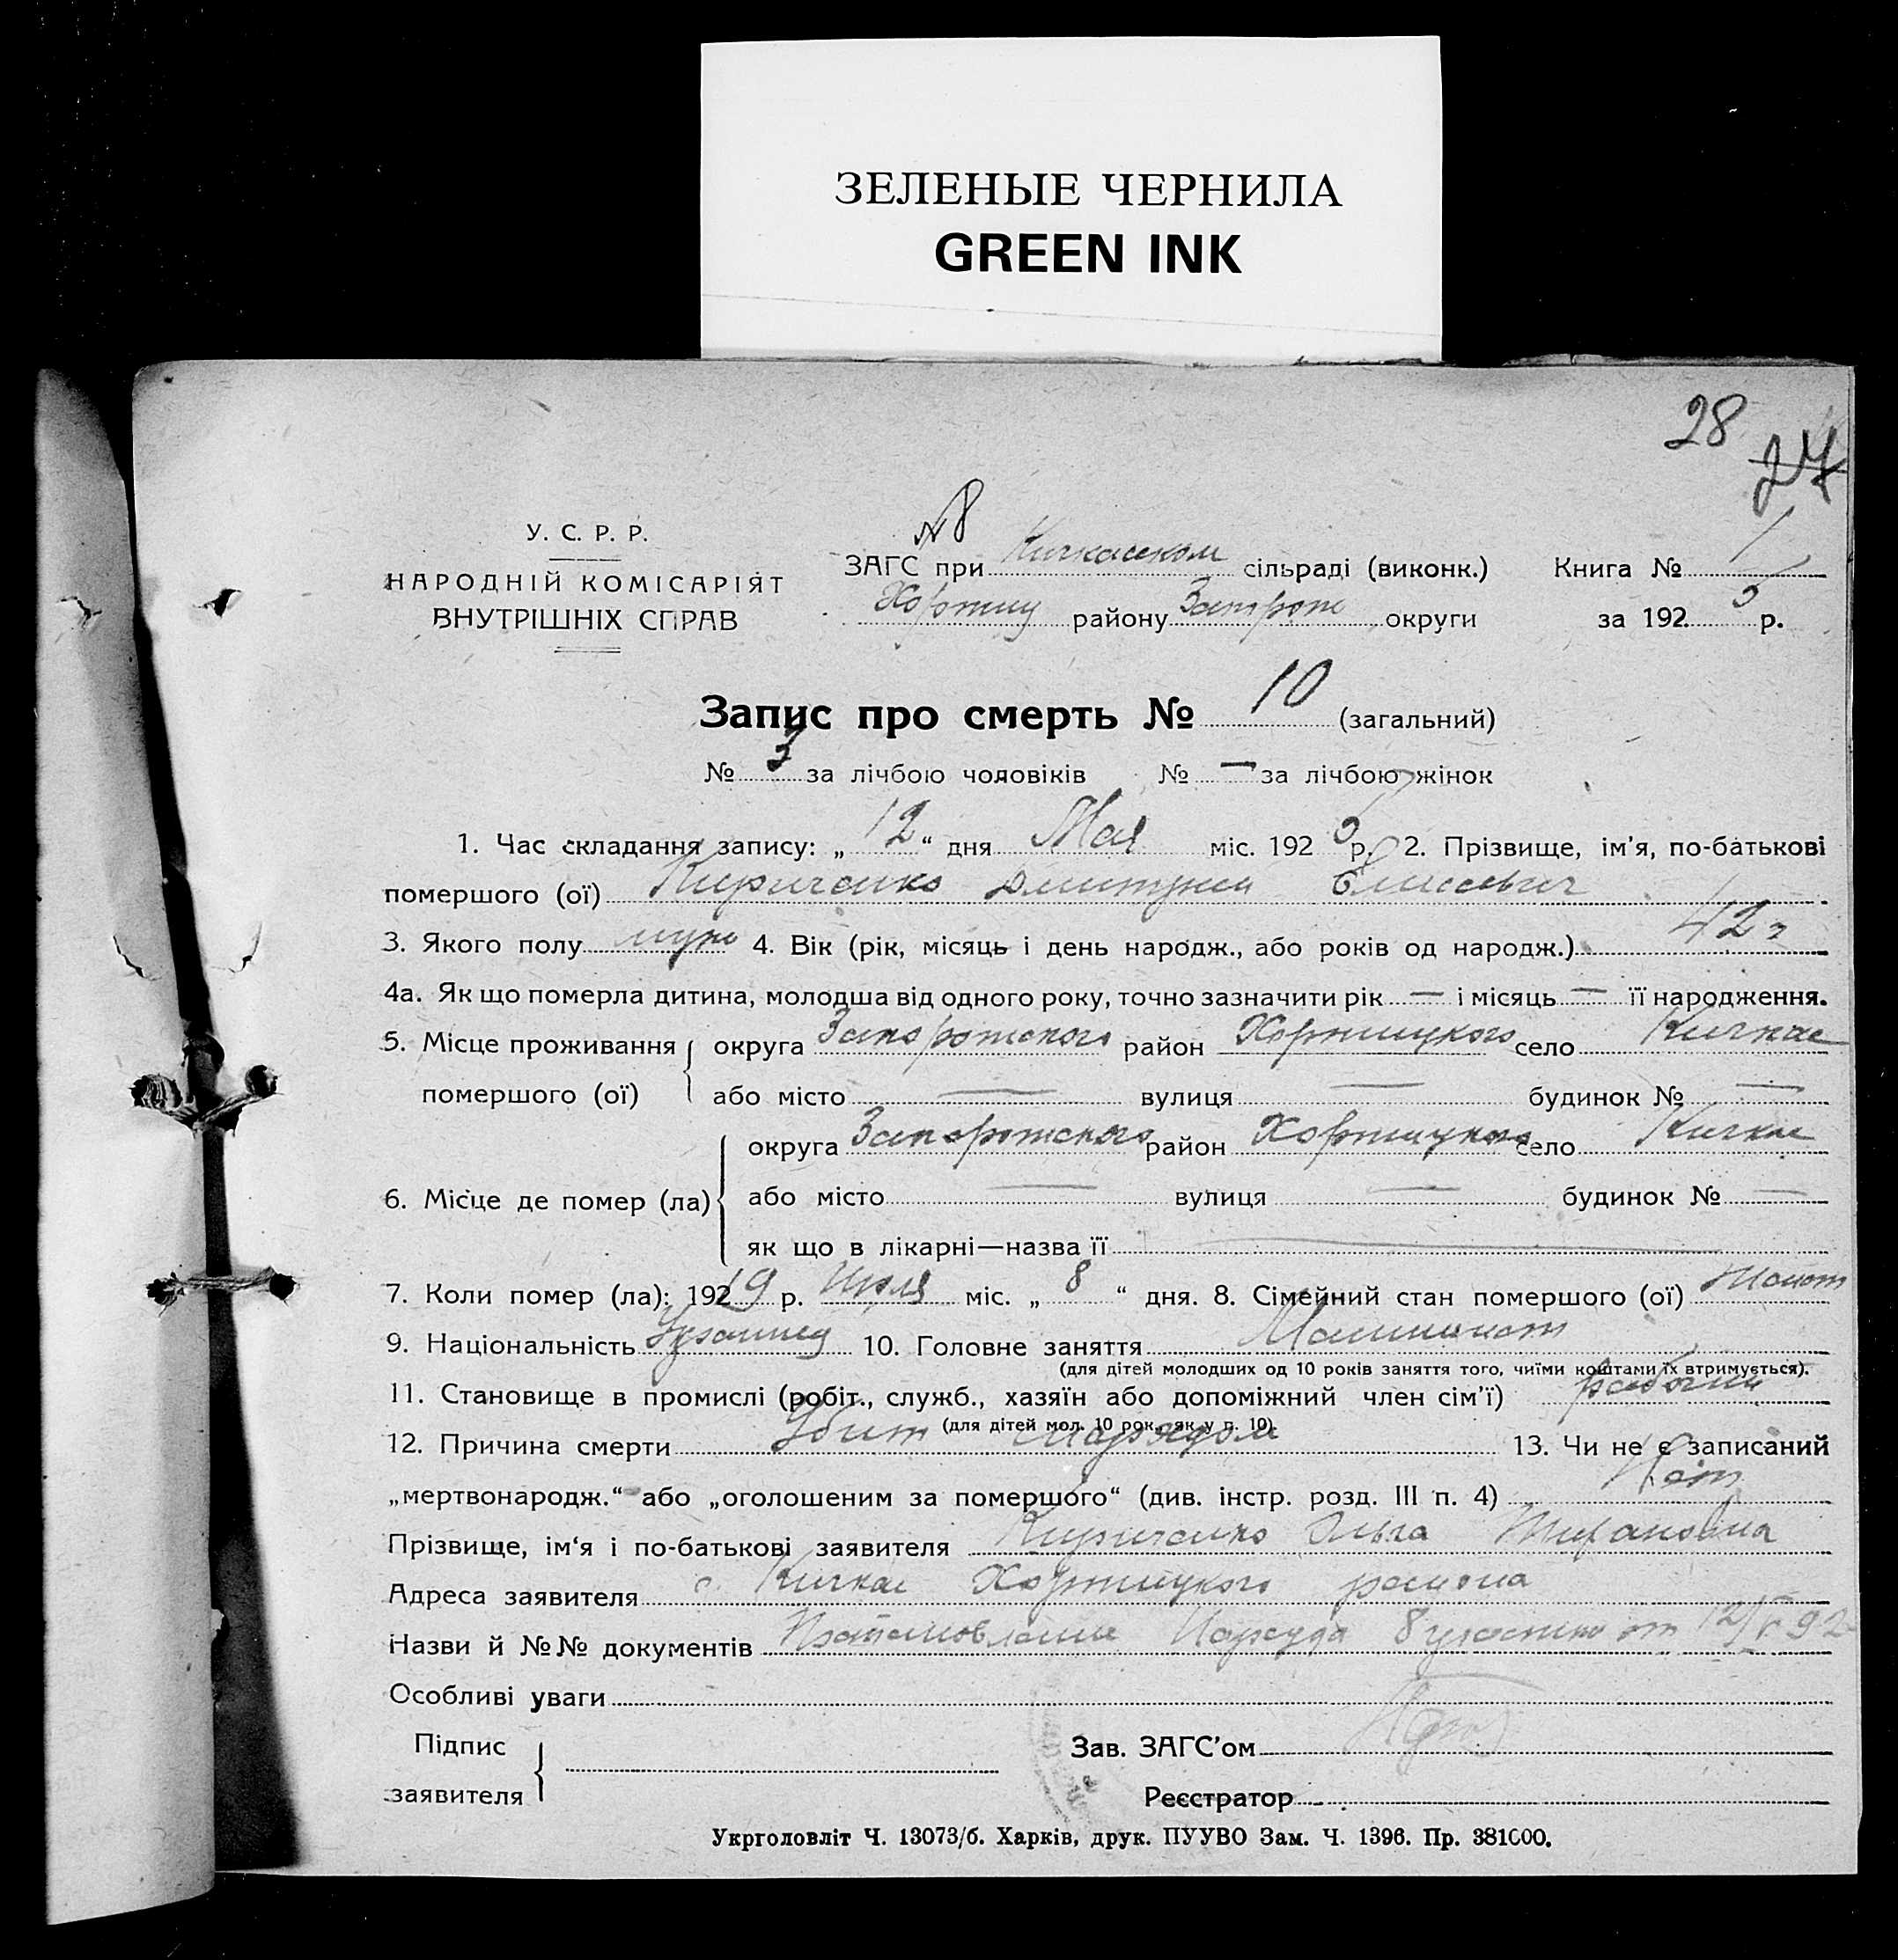 ЗЕЛЕНЫЕ ЧЕРНИЛА
GREEN INK
28
27
У. С. Р. Р.
НАРОДНІЙ КОМІСАРІЯТ
ВНУТРІШНІХ СПРАВ
№ 8
ЗАГС при Кичкасском сільраді (виконк.) Книга № 1
Хортиц району Запорож округи за 192 5 р.
Запис про смерть № 10 (загальний)
№ 3 за лічбою чоловіків № — за лічбою жінок
1. Час складання запису: „ 12 “ дня Мая міс. 192 р. 2. Прізвище, ім’я, по-батькові
помершого (ої) Кириченко Дмитрий Елисеевич
3. Якого полу муж 4. Вік (рік, місяць і день народж., або років од народж.) 42 г
4а. Як що померла дитина, молодша від одного року, точно зазначити рік — і місяць — її народження.
5. Місце проживання округа Запорожского район Хортицкого село Кичкас
помершого (ої) або місто — вулиця — будинок № —
округа Запорожского район Хортицкого село Кичкас
6. Місце де помер (ла) або місто — вулиця — будинок № —
як що в лікарні—назва її —
7. Коли помер (ла): 1929 р. Июля міс. „ 8 “ дня. 8. Сімейний стан помершого (ої) Женат
9. Національність 10. Головне заняття Машинист
(для дітей молодших од 10 років заняття того, чиїми коштами їх втримується).
11. Становище в промислі (робіт., служб., хазяїн або допоміжний член сім’ї) рабочий
(для дітей мол. 10 рок., як у п. 10).
12. Причина смерти Убит снарядом 13. Чи не є записаний
„мертвонародж.“ або „оголошеним за помершого“ (див. інстр. розд. III п. 4) Нет
Прізвище, ім‘я і по-батькові заявителя Кириченко Ольга
Адреса заявителя с. Кичкас Хортицкого района
Назви й №№ документів Постановление Нарсуда 8 участка от 12/V 92
Особливі уваги
Підпис
заявителя
Зав. ЗАГС’ом
Реєстратор
Укрголовліт Ч. 13073/б. Харків, друк. ПУУВО Зам. Ч. 1396. Пр. 381000.